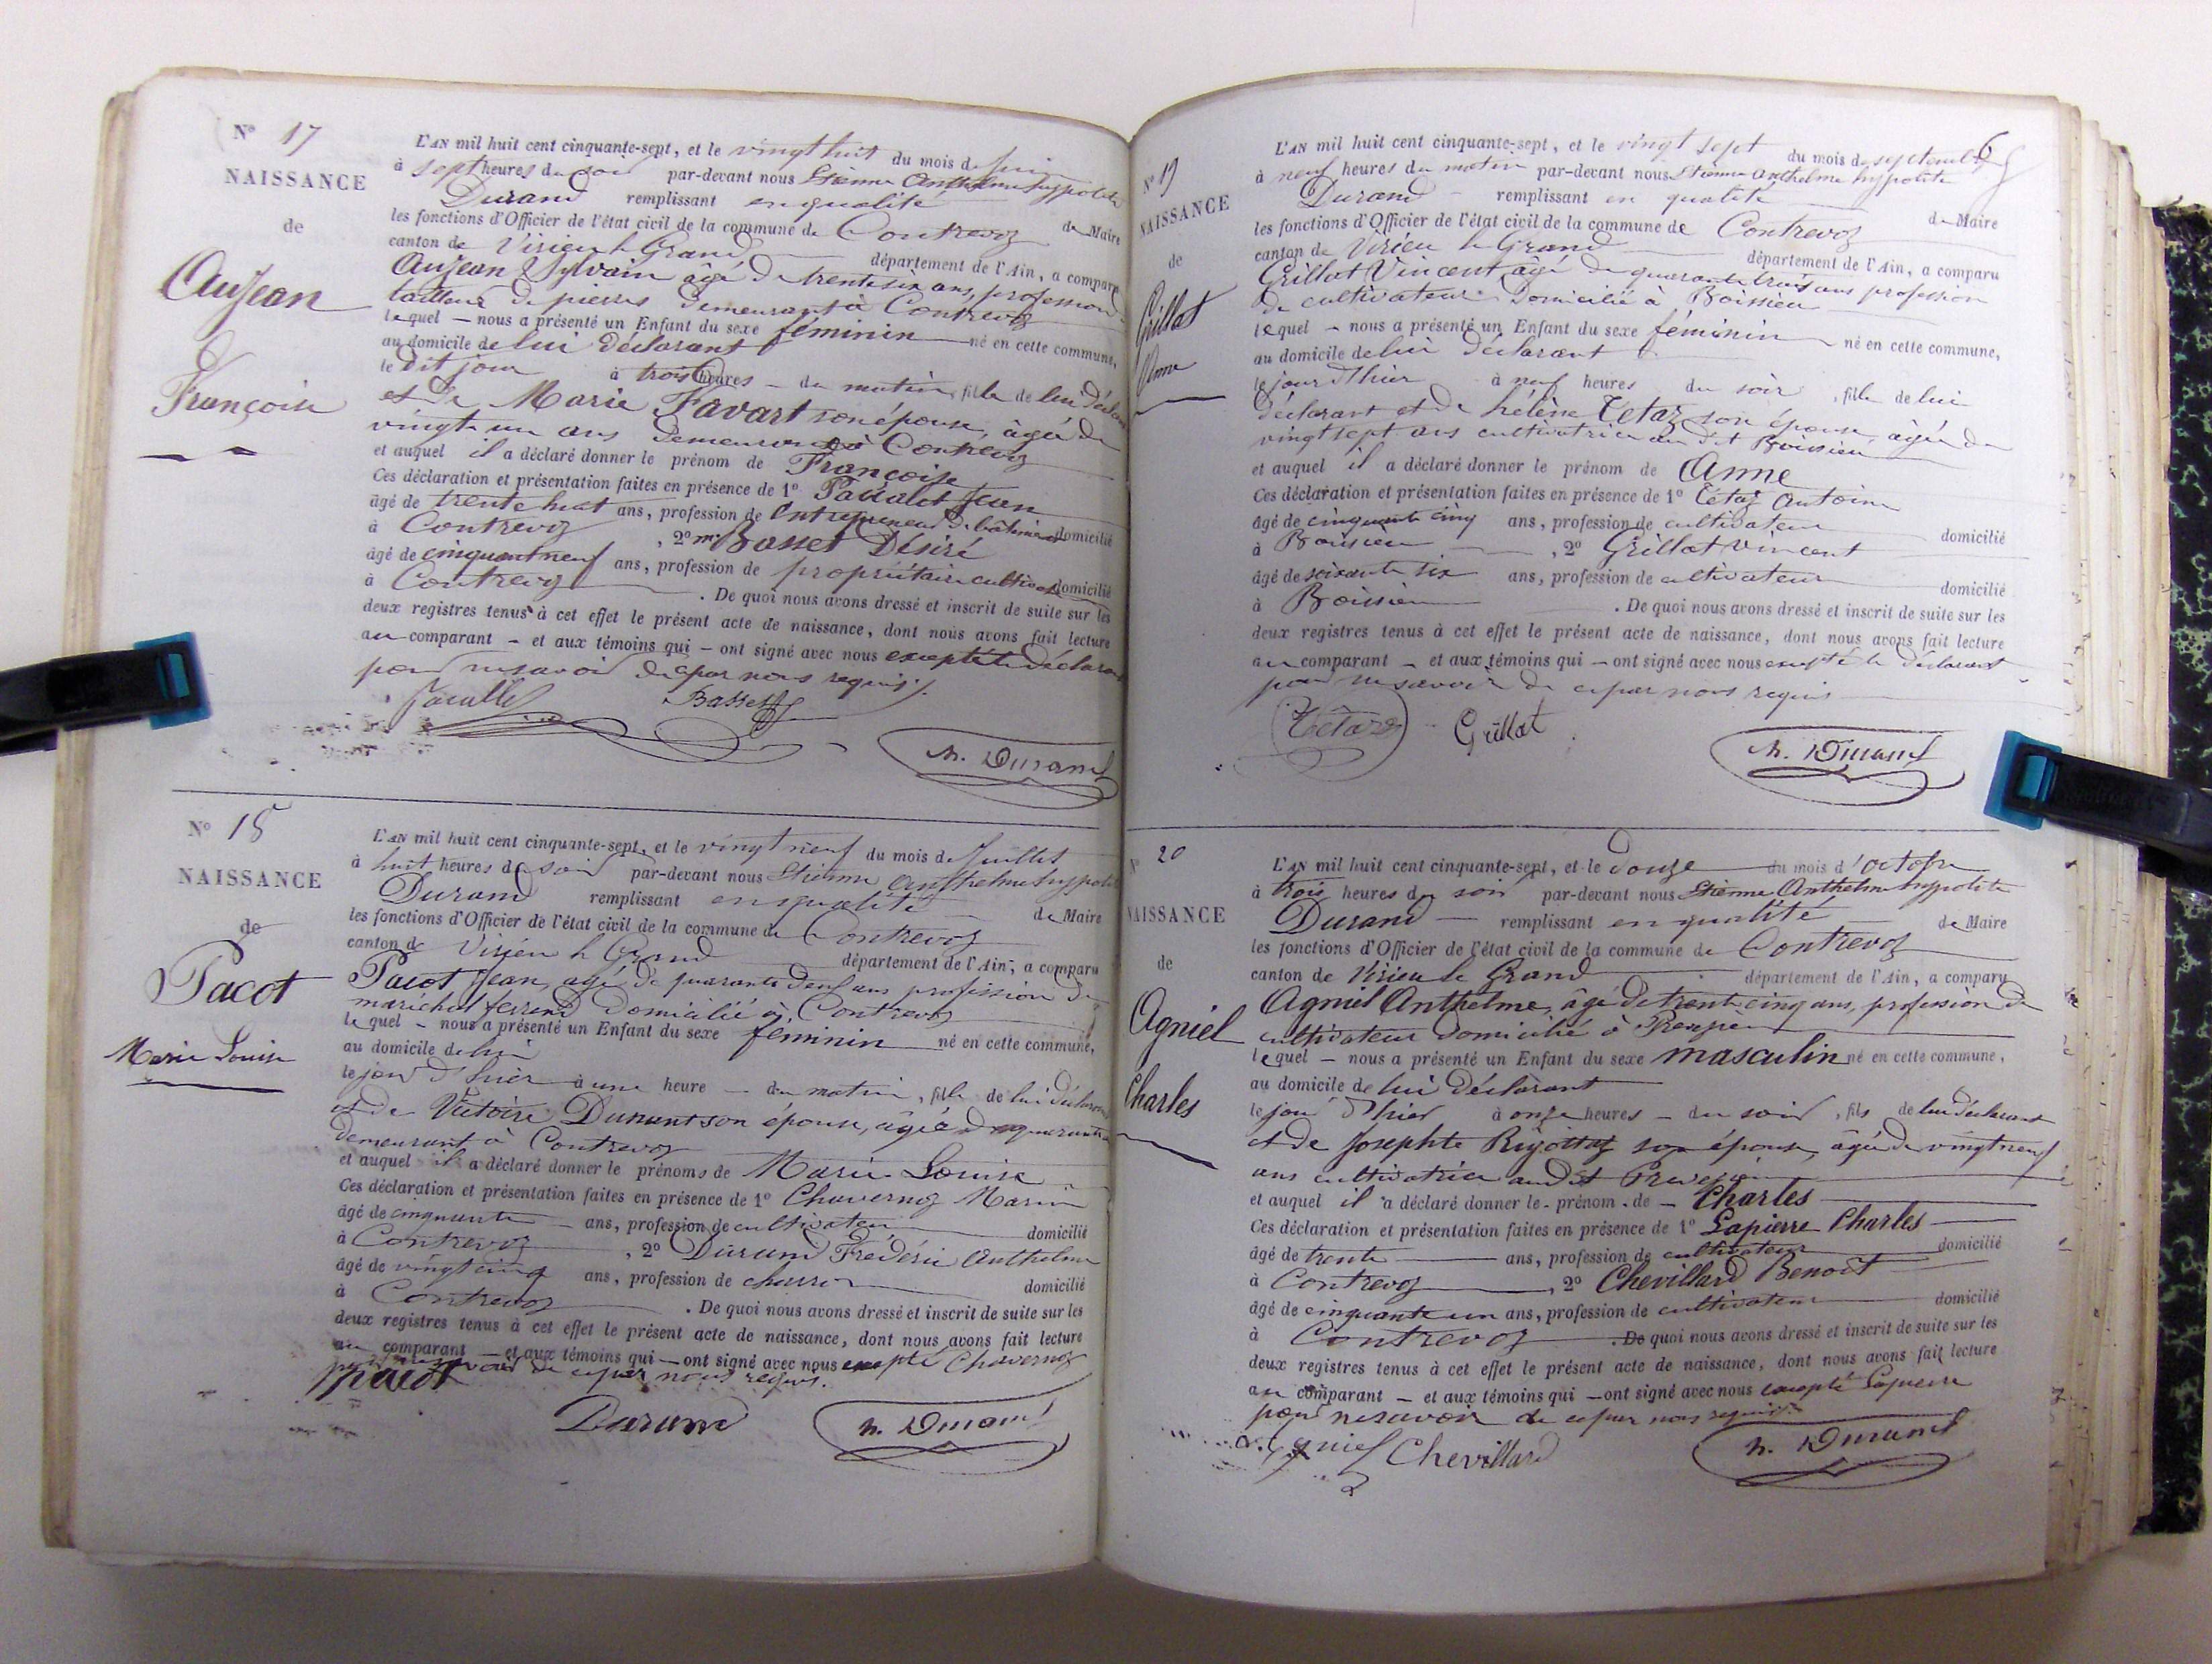 N° 17
NAISSANCE
de
Aujean
Françoise
L'AN mil huit cent cinquante-sept, et le vingt huit du mois de juin
à sept heures du soir par-devant nous Etienne Anthelme hyppolite
Durand remplissant en qualité de Maire
les fonctions d'Officier de l'état civil de la commune de Contrevoz
canton de Virieu le Grand département de l'Ain, a comparu
Aujean Sylvain âgé de trente six ans, profession
tailleur de pierres demeurant à Contrevoz
lequel — nous a présenté un Enfant du sexe féminin né en cette commune,
au domicile de lui déclarant
le dit jour à trois heures - du matin, fille de lui déclarant
et de Marie Favart son épouse, âgée de
vingt un ans demeurant à Contrevoz
et auquel il a déclaré donner le prénom de Françoise
Ces déclaration et présentation faites en présence de 1° Jean
âgé de trente huit ans, profession de Entrepreneur de bâtiment domicilié
à Contrevoz, 2° mr Basset Désiré
âgé de cinquant neuf ans, profession de propriétaire cultivat domicilié
à Contrevoz. De quoi nous avons dressé et inscrit de suite sur les
deux registres tenus à cet effet le présent acte de naissance, dont nous avons fait lecture
au comparant - et aux témoins qui - ont signé avec nous excepté le déclarant
pour ne savoir de ce par nous requis.
Basset
h. Durand
N° 18
NAISSANCE
de
Pacot
Marie Louise
L'AN mil huit cent cinquante-sept, et le vingt neuf du mois de Juillet
à huit heures du soir par-devant nous Etienne Anthelme hyppolite
Durand remplissant en qualité de Maire
les fonctions d'Officier de l'état civil de la commune de Contrevoz
canton de Virieu le Grand département de l'Ain, a comparu
Pacot Jean, agé de quarante deux ans profession de
maréchal ferrand domicilié à Contrevoz
lequel - nous a présenté un Enfant du sexe féminin né en cette commune,
au domicile de lui
le jour d'hier à une heure - du matin, fille de lui déclarant
et de Victoire Dunant son épouse, âgée de quarante
demeurant à Contrevoz
et auquel il a déclaré donner le prénoms de Marie Louise
Ces déclaration et présentation faites en présence de 1° Chavernoz Marin
âgé de cinquante ans, profession de cultivateur domicilié
à Contrevoz, 2° Durand Frédéric Anthelme
âgé de vingt cinq ans, profession de charron domicilié
à Contrevoz. De quoi nous avons dressé et inscrit de suite sur les
deux registres tenus à cet effet le présent acte de naissance, dont nous avons fait lecture
au comparant - et aux témoins qui - ont signé avec nous excepté Chavernoz
pour ne savoir de ce par nous requis.
Pacot
Durand
h. Durand
6
N° 19
NAISSANCE
de
Grillat
Anne
L'AN mil huit cent cinquante-sept, et le vingt sept du mois de septembre
à neuf heures du matin par-devant nous Etienne Anthelme hyppolite
Durand remplissant en qualité de Maire
les fonctions d'Officier de l'état civil de la commune de Contrevoz
canton de Virieu le Grand département de l'Ain, a comparu
Grillat Vincent, âgé de quarante trois ans profession
de cultivateur domicilié à Boissieu
lequel - nous a présenté un Enfant du sexe féminin né en cette commune,
au domicile de lui déclarant
le jour d'hier à neuf heures du soir, fille de lui
déclarant et de hélène Tetaz son épouse, âgée de
vingt sept ans cultivatrice au dit Boissieu
et auquel il a déclaré donner le prénom de Anne
Ces déclaration et présentation faites en présence de 1° Tétaz Antoine
âgé de cinquante cinq ans, profession de cultivateur domicilié
à Boissieu, 2° Grillat Vincent
âgé de soixante six ans, profession de cultivateur domicilié
à Boissieu. De quoi nous avons dressé et inscrit de suite sur les
deux registres tenus à cet effet le présent acte de naissance, dont nous avons fait lecture
au comparant - et aux témoins qui - ont signé avec nous excepté le déclarant
pour ne savoir de ce par nous requis
Tétaz Grillat
h. Durand
N° 20
NAISSANCE
de
Agniel
Charles
L'AN mil huit cent cinquante-sept, et le douze du mois d'octobre
à trois heures du soir par-devant nous Etienne Anthelme hyppolite
Durand - remplissant en qualité de Maire
les fonctions d'Officier de l'état civil de la commune de Contrevoz
canton de Virieu le Grand département de l'Ain, a comparu
Agniel Anthelme, âgé de trente cinq ans, profession de
cultivateur domicilié à
lequel - nous a présenté un Enfant du sexe masculin né en cette commune,
au domicile de lui déclarant
le jour d'hier à onze heures - du soir, fils de lui déclarant
et de Josephte son épouse, âgée de vingt neuf
ans cultivatrice audit
et auquel il a déclaré donner le prénom de - Charles
Ces déclaration et présentation faites en présence de 1° Lapierre Charles
âgé de trente ans, profession de cultivateur domicilié
à Contrevoz, 2° Chevillard Benoit
âgé de cinquante un ans, profession de cultivateur domicilié
à Contrevoz. De quoi nous avons dressé et inscrit de suite sur les
deux registres tenus à cet effet le présent acte de naissance, dont nous avons fait lecture
au comparant - et aux témoins qui - ont signé avec nous excepté Lapierre
pour ne savoir de ce par nous requis
a. agniel Chevillard
h. Durand